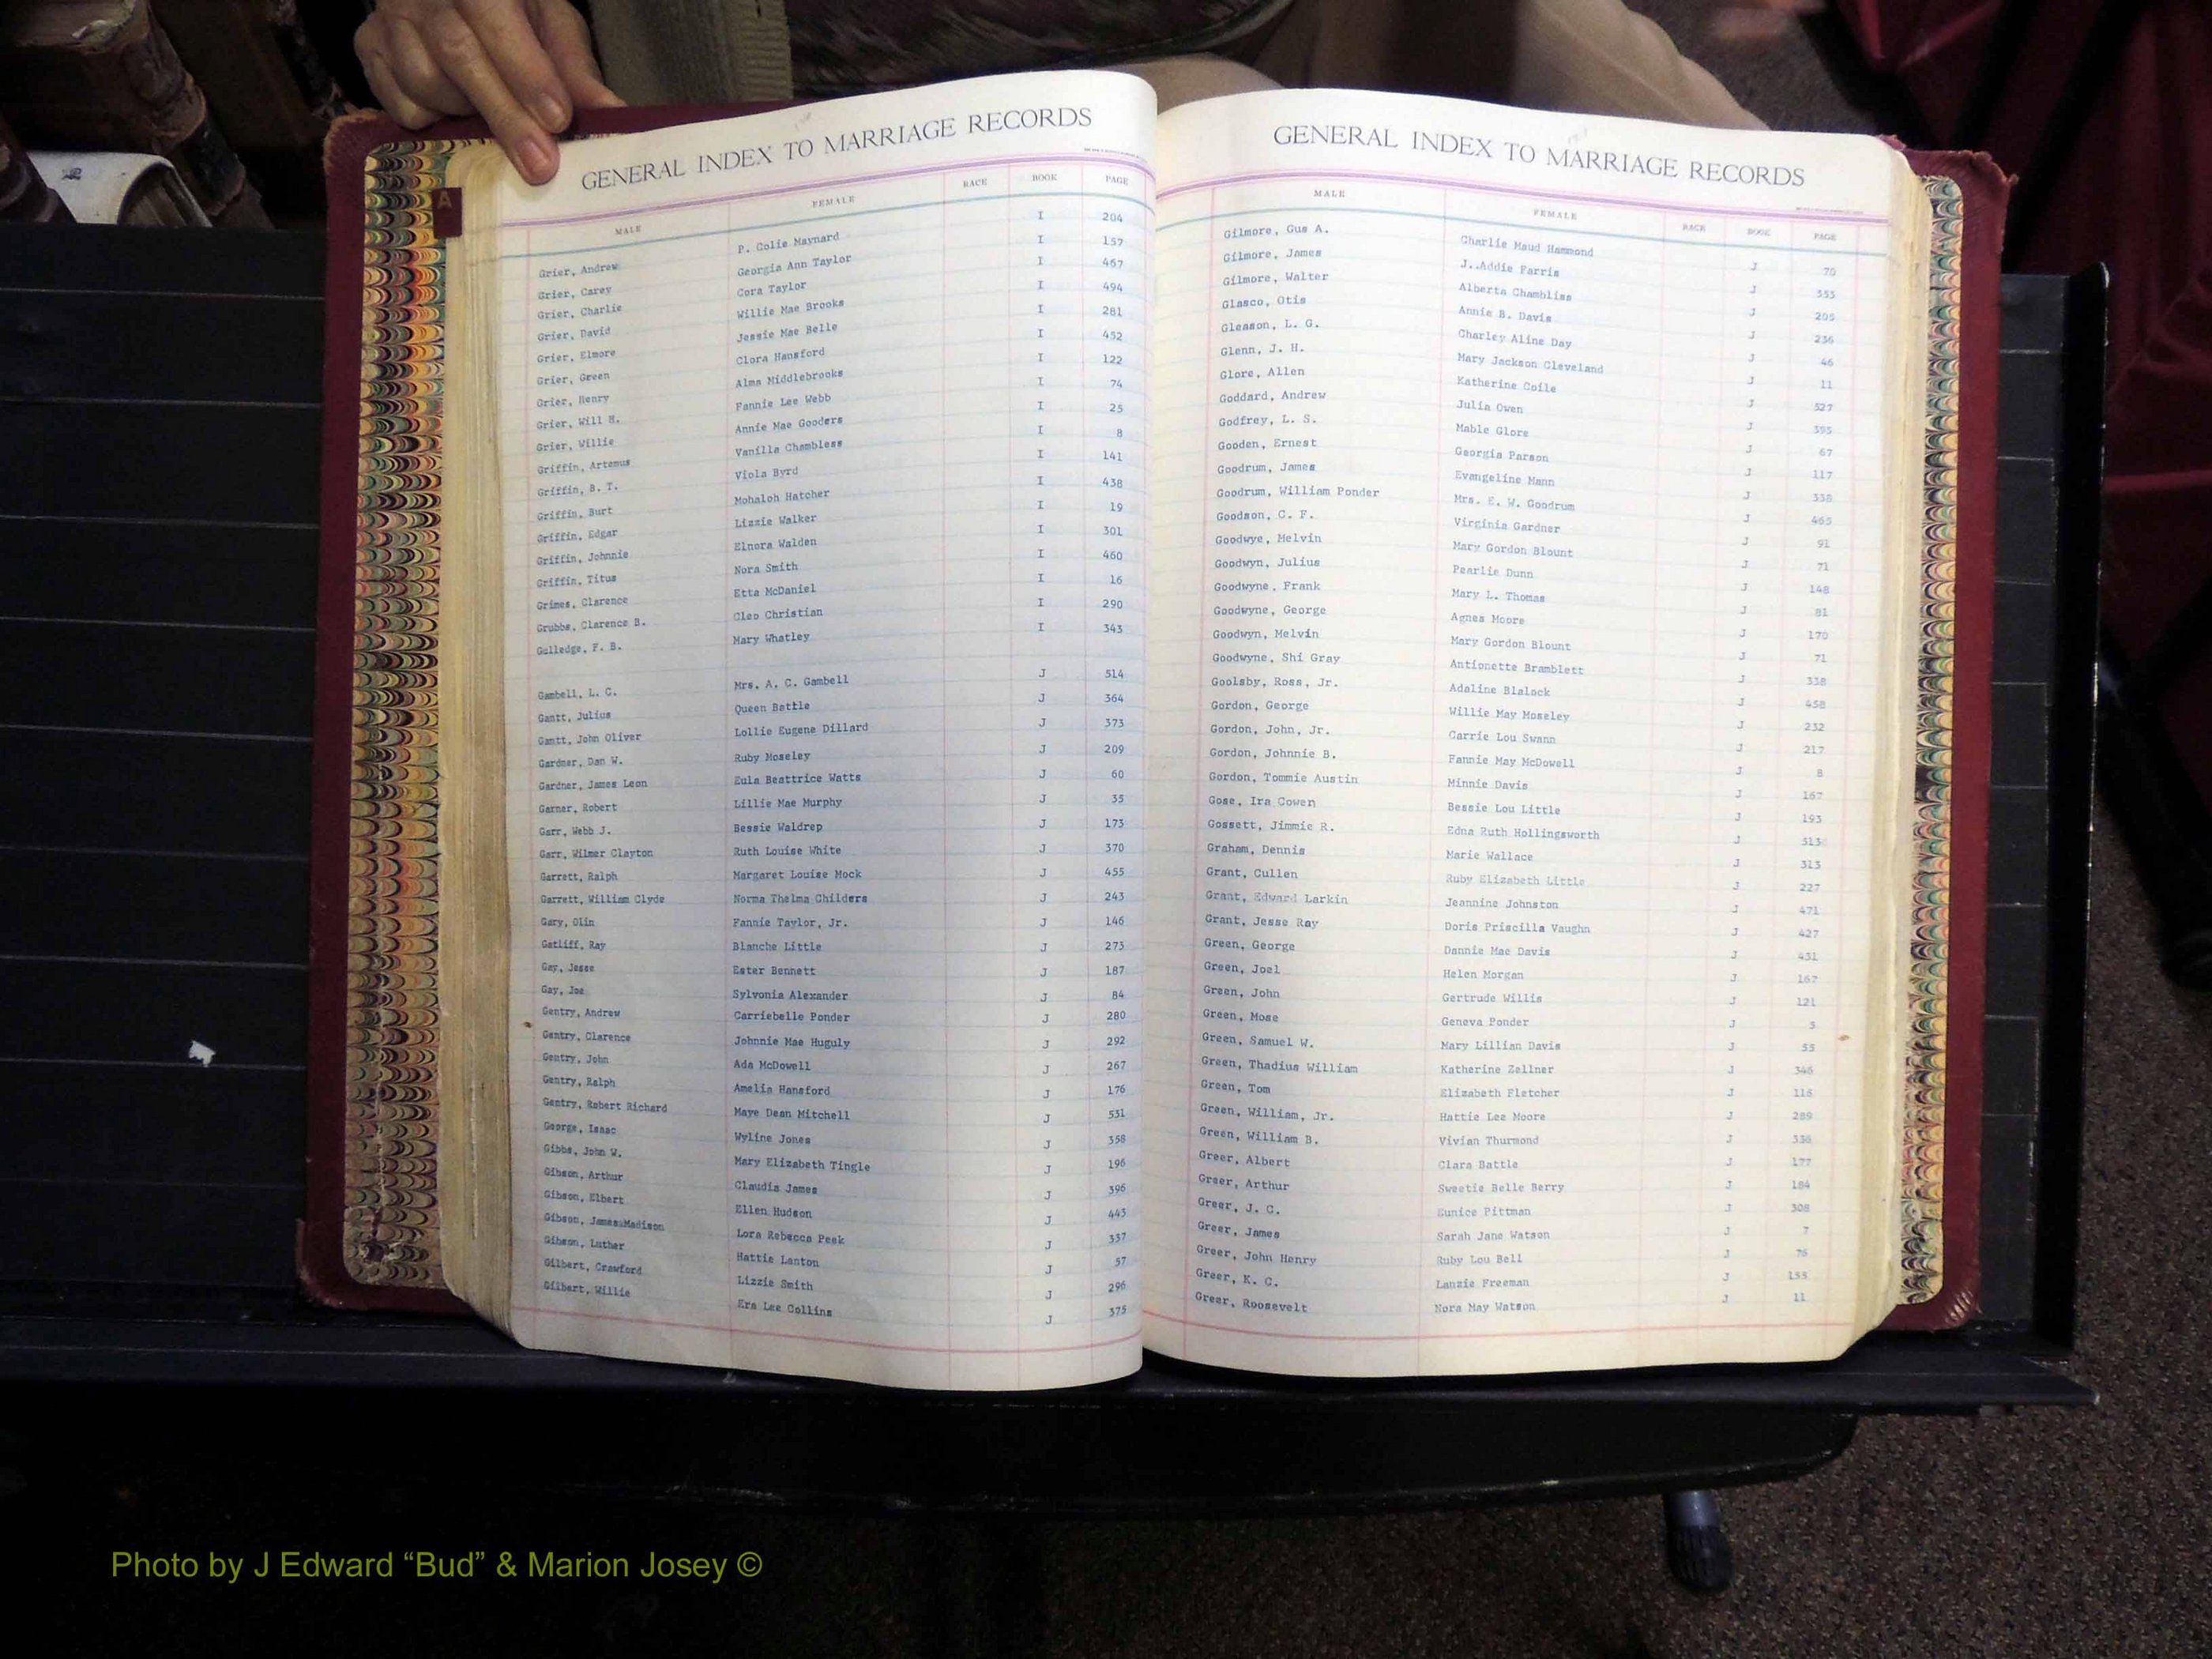 GENERAL INDEX TO MARRIAGE RECORDS
MALE FEMALE RACE BOOK PAGE
Grier, Andrew P. Colie Maynard I 204
Grier, Carey Georgia Ann Taylor I 157
Grier, Charlie Cora Taylor I 467
Grier, David Willie Mae Brooks I 494
Grier, Elmore Jessie Mae Belle I 281
Grier, Green Clora Hansford I 452
Grier, Henry Alma Middlebrooks I 122
Grier, Will H. Fannie Lee Webb I 74
Grier, Willie Annie Mae Gooders I 25
Griffin, Artemus Vanilla Chambless I 8
Griffin, B. T. Viola Byrd I 141
Griffin, Burt Mohaloh Hatcher I 438
Griffin, Edgar Lizzie Walker I 19
Griffin, Johnnie Elnora Walden I 301
Griffin, Titus Nora Smith I 460
Grimes, Clarence Etta McDaniel I 16
Grubbs, Clarence B. Cleo Christian I 290
Gulledge, F. B. Mary Whatley I 343
Gambell, L. C. Mrs. A. C. Gambell J 514
Gantt, Julius Queen Battle J 364
Gantt, John Oliver Lollie Eugene Dillard J 373
Gardner, Dan W. Ruby Moseley J 209
Gardner, James Leon Eula Beattrice Watts J 60
Garner, Robert Lillie Mae Murphy J 35
Garr, Webb J. Bessie Waldrep J 173
Garr, Wilmer Clayton Ruth Louise White J 370
Garrett, Ralph Margaret Louise Mock J 455
Garrett, William Clyde Norma Thelma Childers J 243
Gary, Olin Fannie Taylor, Jr. J 146
Gatliff, Ray Blanche Little J 273
Gay, Jesse Ester Bennett J 187
Gay, Joe Sylvonia Alexander J 84
Gentry, Andrew Carriebelle Ponder J 280
Gentry, Clarence Johnnie Mae Huguly J 292
Gentry, John Ada McDowell J 267
Gentry, Ralph Amelia Hansford J 176
Gentry, Robert Richard Maye Dean Mitchell J 531
George, Isaac Wyline Jones J 358
Gibbs, John W. Mary Elizabeth Tingle J 196
Gibson, Arthur Claudia James J 396
Gibson, Elbert Ellen Hudson J 443
Gibson, James Madison Lora Rebecca Peek J 337
Gibson, Luther Hattie Lanton J 57
Gilbert, Crawford Lizzie Smith J 296
Gilbert, Willie Era Lee Collins J 375
GENERAL INDEX TO MARRIAGE RECORDS
MALE FEMALE RACE BOOK PAGE
Gilmore, Gus A. Charlie Maud Hammond J 70
Gilmore, James J..Addie Farris J 353
Gilmore, Walter Alberta Chambliss J 205
Glasco, Otis Annie B. Davis J 236
Gleason, L. G. Charley Aline Day J 46
Glenn, J. H. Mary Jackson Cleveland J 11
Glore, Allen Katherine Coile J 527
Goddard, Andrew Julia Owen J 395
Godfrey, L. S. Mable Glore J 67
Gooden, Ernest Georgia Parson J 117
Goodrum, James Evangeline Mann J 338
Goodrum, William Ponder Mrs. E. W. Goodrum J 465
Goodson, C. F. Virginia Gardner J 91
Goodwye, Melvin Mary Gordon Blount J 71
Goodwyn, Julius Pearlie Dunn J 148
Goodwyne, Frank Mary L. Thomas J 81
Goodwyne, George Agnes Moore J 170
Goodwyn, Melvin Mary Gordon Blount J 71
Goodwyne, Shi Gray Antionette Bramblett J 338
Goolsby, Ross, Jr. Adaline Blalock J 458
Gordon, George Willie May Moseley J 232
Gordon, John, Jr. Carrie Lou Swann J 217
Gordon, Johnnie B. Fannie May McDowell J 8
Gordon, Tommie Austin Minnie Davis J 167
Gose, Ira Cowen Bessie Lou Little J 193
Gossett, Jimmie R. Edna Ruth Hollingsworth J 513
Graham, Dennis Marie Wallace J 313
Grant, Cullen Ruby Elizabeth Little J 227
Grant, Edward Larkin Jeannine Johnston J 471
Grant, Jesse Ray Doris Priscilla Vaughn J 427
Green, George Dannie Mae Davis J 431
Green, Joel Helen Morgan J 167
Green, John Gertrude Willis J 121
Green, Mose Geneva Ponder J 3
Green, Samuel W. Mary Lillian Davis J 55
Green, Thadius William Katherine Zellner J 346
Green, Tom Elizabeth Fletcher J 116
Green, William, Jr. Hattie Lee Moore J 289
Green, William B. Vivian Thurmond J 336
Greer, Albert Clara Battle J 177
Greer, Arthur Sweetie Belle Berry J 184
Greer, J. C. Eunice Pittman J 308
Greer, James Sarah Jane Watson J 7
Greer, John Henry Ruby Lou Bell J 76
Greer, K. C. Lanzie Freeman J 153
Greer, Roosevelt Nora May Watson J 11
A
Photo by J Edward “Bud” & Marion Josey ©